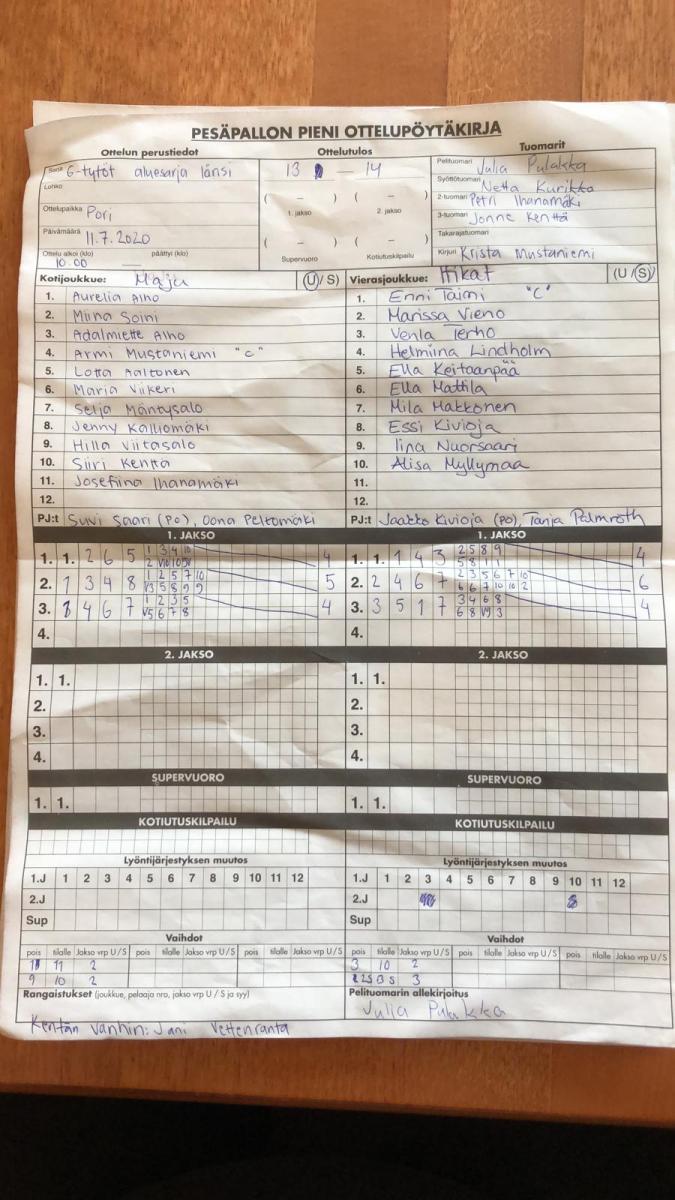 PESÄPALLON PIENI OTTELUPÖYTÄKIRJA
Ottelun perustiedot
Sarja G-tytöt aluesarja länsi
Lohko
Ottelupaikka Pori
Päivämäärä 11.7.2020
Ottelu alkoi (klo) päättyi (klo)
10.00
Ottelutulos
13 – 14
( – ) ( – )
1. jakso 2. jakso
( – ) ( – )
Supervuoro Kotiutuskilpailu
Tuomarit
Pelituomari Julia Pulakka
Syöttötuomari Netta Kurikka
2-tuomari Petri Ihanamäki
3-tuomari Jonne Kenttä
Takarajatuomari
Kirjuri Krista Mustaniemi
Kotijoukkue: Maju (U/S)
1. Aurelia Alho
2. Miina Soini
3. Adalmiette Alho
4. Armi Mustaniemi "C"
5. Lotta Aaltonen
6. Maria Viikeri
7. Selja Mäntysalo
8. Jenny Kalliomäki
9. Hilla Viitasalo
10. Siiri Kenttä
11. Josefiina Ihanamäki
12.
PJ:t Suvi Saari (PO), Oona Peltomäki
Vierasjoukkue: Hikat (U/S)
1. Enni Taimi "C"
2. Marissa Vieno
3. Venla Terho
4. Helmiina Lindholm
5. Ella Keitaanpää
6. Ella Mattila
7. Mila Hakkonen
8. Essi Kivioja
9. Iina Nuorsaari
10. Alisa Myllymaa
11.
12.
PJ:t Jaakko Kivioja (PO), Tanja Palmroth
1. JAKSO
1. 1. 2 6 5 1 3 4 10 4
2. 1 3 4 8 1 2 5 7 10 5
V3 5 8 9 9
3. 4 6 7 1 2 3 5 4
V5 6 7 8
4.
1. JAKSO
1. 1. 1 4 3 2 5 8 9 4
5 8 1 1
2. 2 4 6 7 2 3 5 6 7 10 6
6 6 7 10 10 2
3. 3 5 1 7 3 4 6 8 4
6 8 V9 3
4.
2. JAKSO
1. 1.
2.
3.
4.
2. JAKSO
1. 1.
2.
3.
4.
SUPERVUORO
1. 1.
SUPERVUORO
1. 1.
KOTIUTUSKILPAILU
KOTIUTUSKILPAILU
Lyöntijärjestyksen muutos
1.J 1 2 3 4 5 6 7 8 9 10 11 12
2.J
Sup
Lyöntijärjestyksen muutos
1.J 1 2 3 4 5 6 7 8 9 10 11 12
2.J
Sup
Vaihdot
pois tilalle Jakso vrp U/S pois tilalle Jakso vrp U/S pois tilalle Jakso vrp U/S
11 2
9 10 2
Vaihdot
pois tilalle Jakso vrp U/S pois tilalle Jakso vrp U/S pois tilalle Jakso vrp U/S
3 10 2
3
Rangaistukset (joukkue, pelaaja nro, jakso vrp U/S ja syy)
Kentän vanhin: Jani Vettenranta
Pelituomarin allekirjoitus
Julia Pulakka